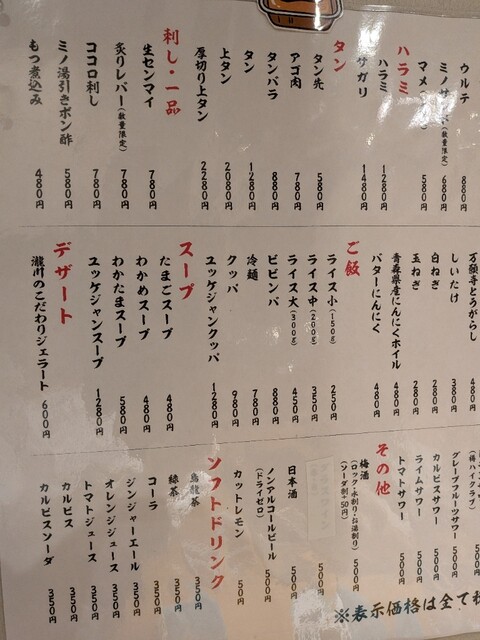 ウルテ 880円
ミノサ（数量限定）680円
マメ 580円
ハラミ
ハラミ 1280円
サガリ 1480円
タン
タン先 580円
アゴ肉 780円
タンバラ 880円
タン 1280円
上タン 2080円
厚切り上タン 2280円
刺し・一品
生センマイ 780円
炙りレバー（数量限定）780円
ココロ刺し 780円
ミノ湯引きポン酢 580円
もつ煮込み 480円
万願寺とうがらし 480円
しいたけ 380円
白ねぎ 280円
玉ねぎ 280円
青森県産にんにくホイル 480円
バターにんにく 480円
ご飯
ライス小（150g）250円
ライス中（200g）350円
ライス大（300g）450円
ビビンバ 880円
冷麺 780円
クッパ 980円
ユッケジャンクッパ 1280円
スープ
たまごスープ 480円
わかめスープ 480円
わかたまスープ 580円
ユッケジャンスープ 1280円
デザート
瀧川のこだわりジェラート 600円
（樽ハイクラブ）
グレープフルーツサワー 500円
カルピスサワー 500円
ライムサワー 500円
トマトサワー 500円
その他
梅酒（ロック・水割り・お湯割り）（ソーダ割+50円）500円
日本酒 500円
ノンアルコールビール（ドライゼロ）500円
カットレモン 50円
ソフトドリンク
烏龍茶 350円
緑茶 350円
コーラ 350円
ジンジャーエール 350円
オレンジジュース 350円
トマトジュース 350円
カルピス 350円
カルピスソーダ 350円
※表示価格は全て